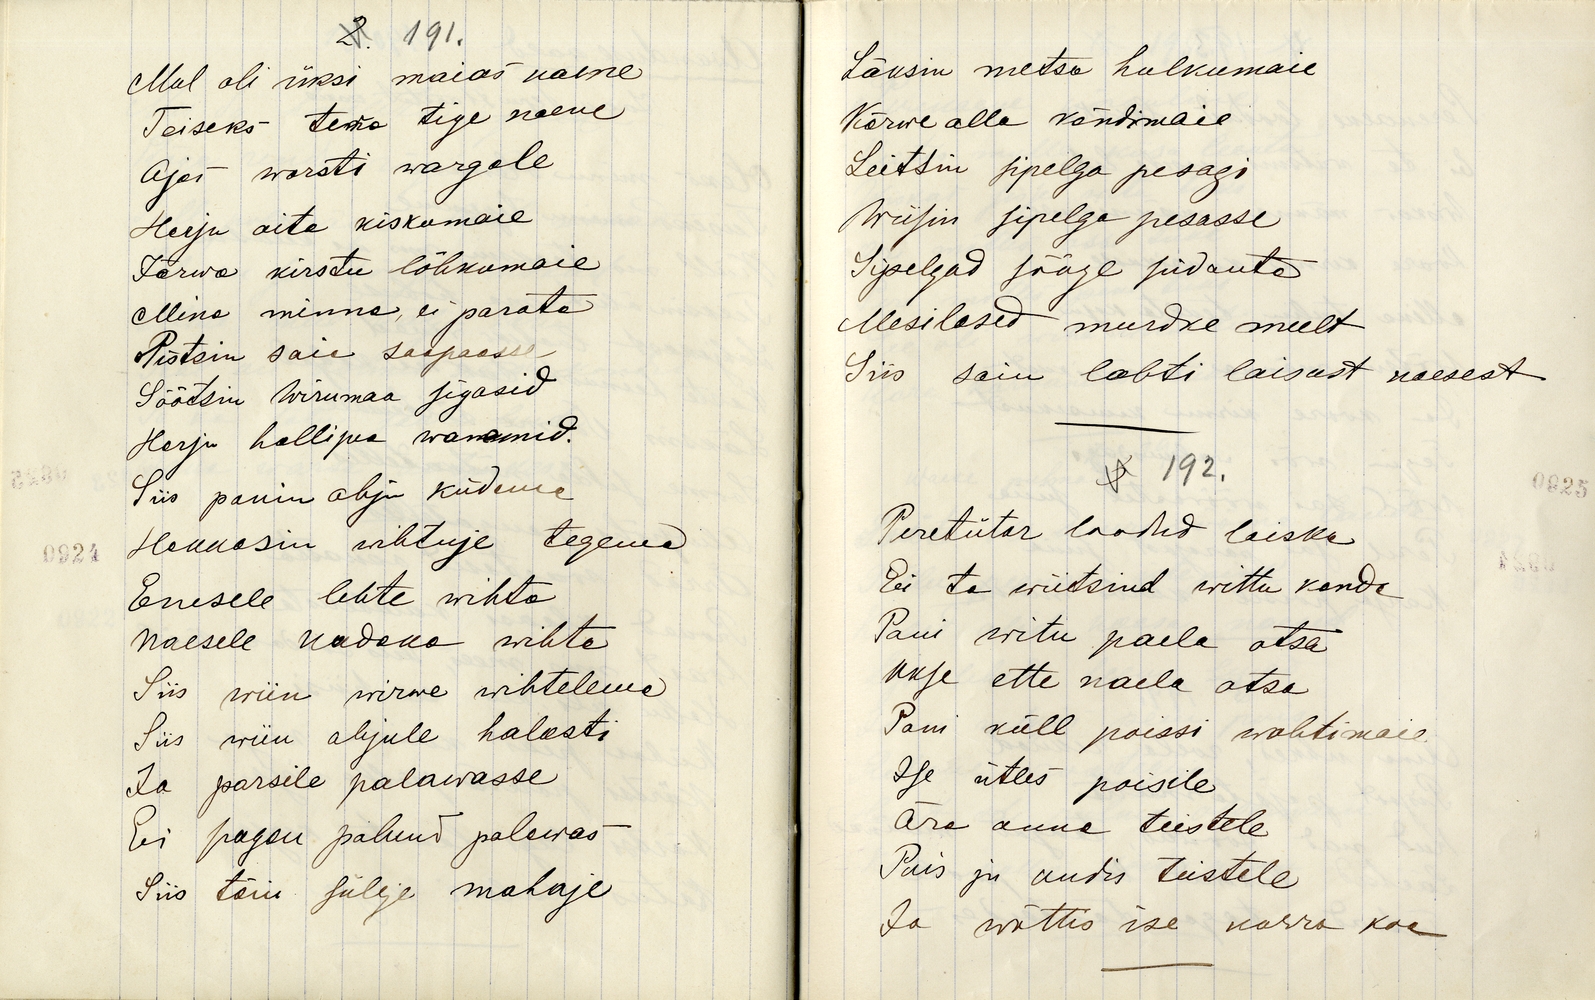 2. 191.
Mul oli üksi maias naene
Teiseks tema tige naene
Ajas worsti wargale
Harju aita kiskumaie
Järwa kirstu lõhkumaie
Mina minna, ei parata
Pistsin saia saapaasse
Söötsin Wirumaa sigasid
Harju hallipea wanamid.
Siis panin ahju küdema
Hakkasin wihtuje tegema
Enesele lehte wihta
Naesele kadaka wihta
Siis wiin wirwe wihtelema
Siis wiin ahjule halasti
Ja parsile palawasse
Ei pagan põlend palawas
Siis tõin sülije mahaje
0924
Läksin metsa hulkumaie
Kõrwe alla kõndimaie
Leitsin sipelga pesagi
Wiisin sipelga pesasse
Sipelgad sööge südanta
Mesilased murdke meelt
Siis sain lahti laisast naesest
192.
0925
Peretütar loodud laiska
Ei ta wiitsind wittu kanda
Pani witu paela otsa
Ukse ette naela otsa
Pani küll poissi wahtimaie
Ise ütles poisile
Ära anna teistele
Pois ju andis teistele
Ja wõttis ise korra kaa